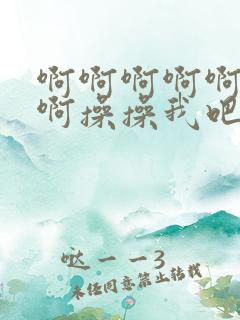 啊啊啊啊啊
啊操操我吧
哒一一3
未经同意禁止转载